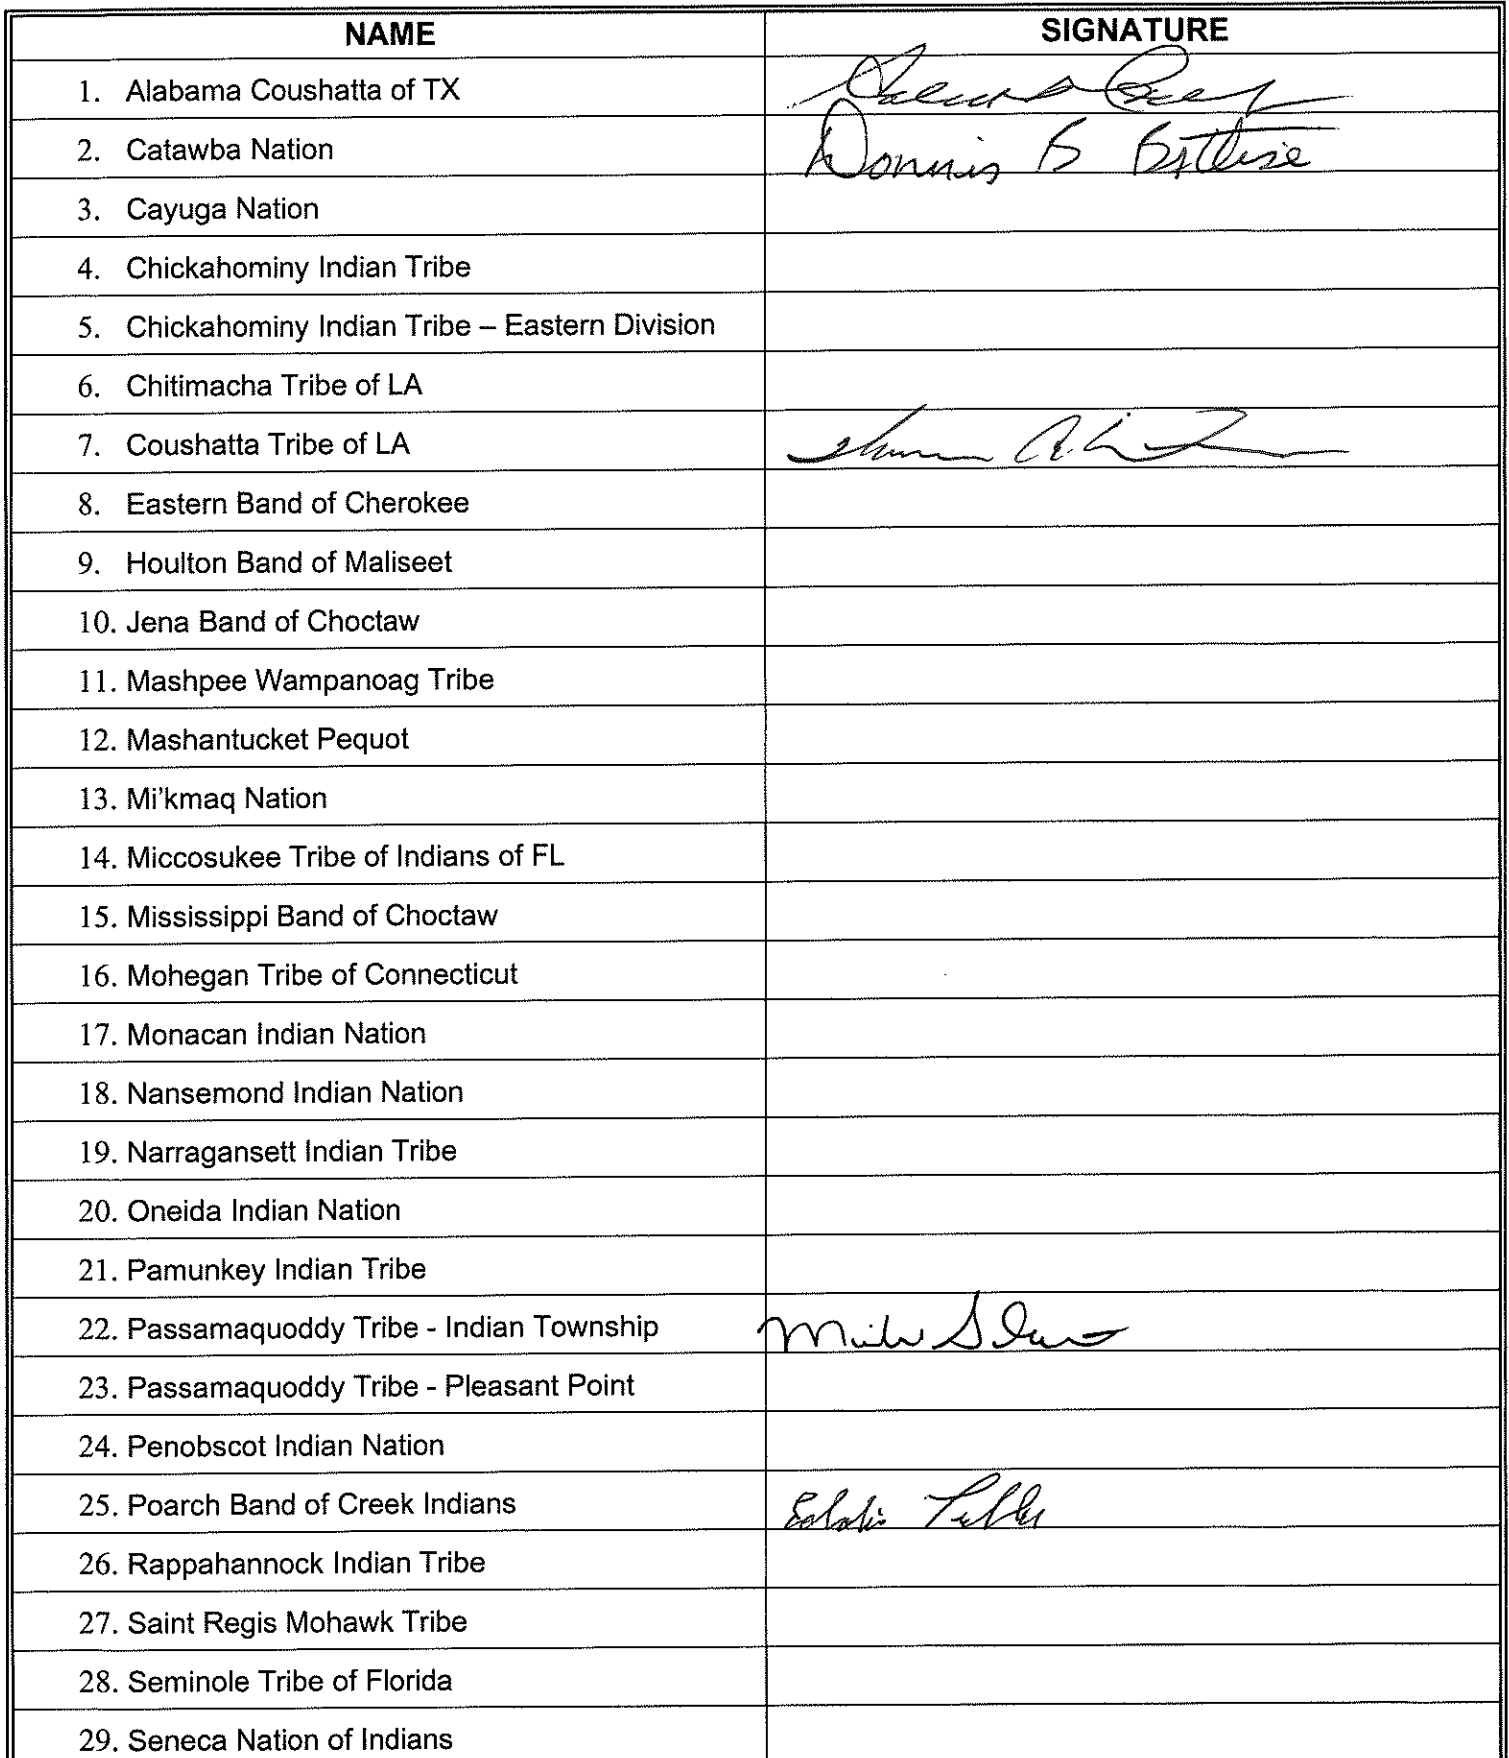 NAME SIGNATURE
1. Alabama Coushatta of TX
2. Catawba Nation Donnis B Battise
3. Cayuga Nation
4. Chickahominy Indian Tribe
5. Chickahominy Indian Tribe – Eastern Division
6. Chitimacha Tribe of LA
7. Coushatta Tribe of LA
8. Eastern Band of Cherokee
9. Houlton Band of Maliseet
10. Jena Band of Choctaw
11. Mashpee Wampanoag Tribe
12. Mashantucket Pequot
13. Mi'kmaq Nation
14. Miccosukee Tribe of Indians of FL
15. Mississippi Band of Choctaw
16. Mohegan Tribe of Connecticut
17. Monacan Indian Nation
18. Nansemond Indian Nation
19. Narragansett Indian Tribe
20. Oneida Indian Nation
21. Pamunkey Indian Tribe
22. Passamaquoddy Tribe - Indian Township
23. Passamaquoddy Tribe - Pleasant Point
24. Penobscot Indian Nation
25. Poarch Band of Creek Indians
26. Rappahannock Indian Tribe
27. Saint Regis Mohawk Tribe
28. Seminole Tribe of Florida
29. Seneca Nation of Indians